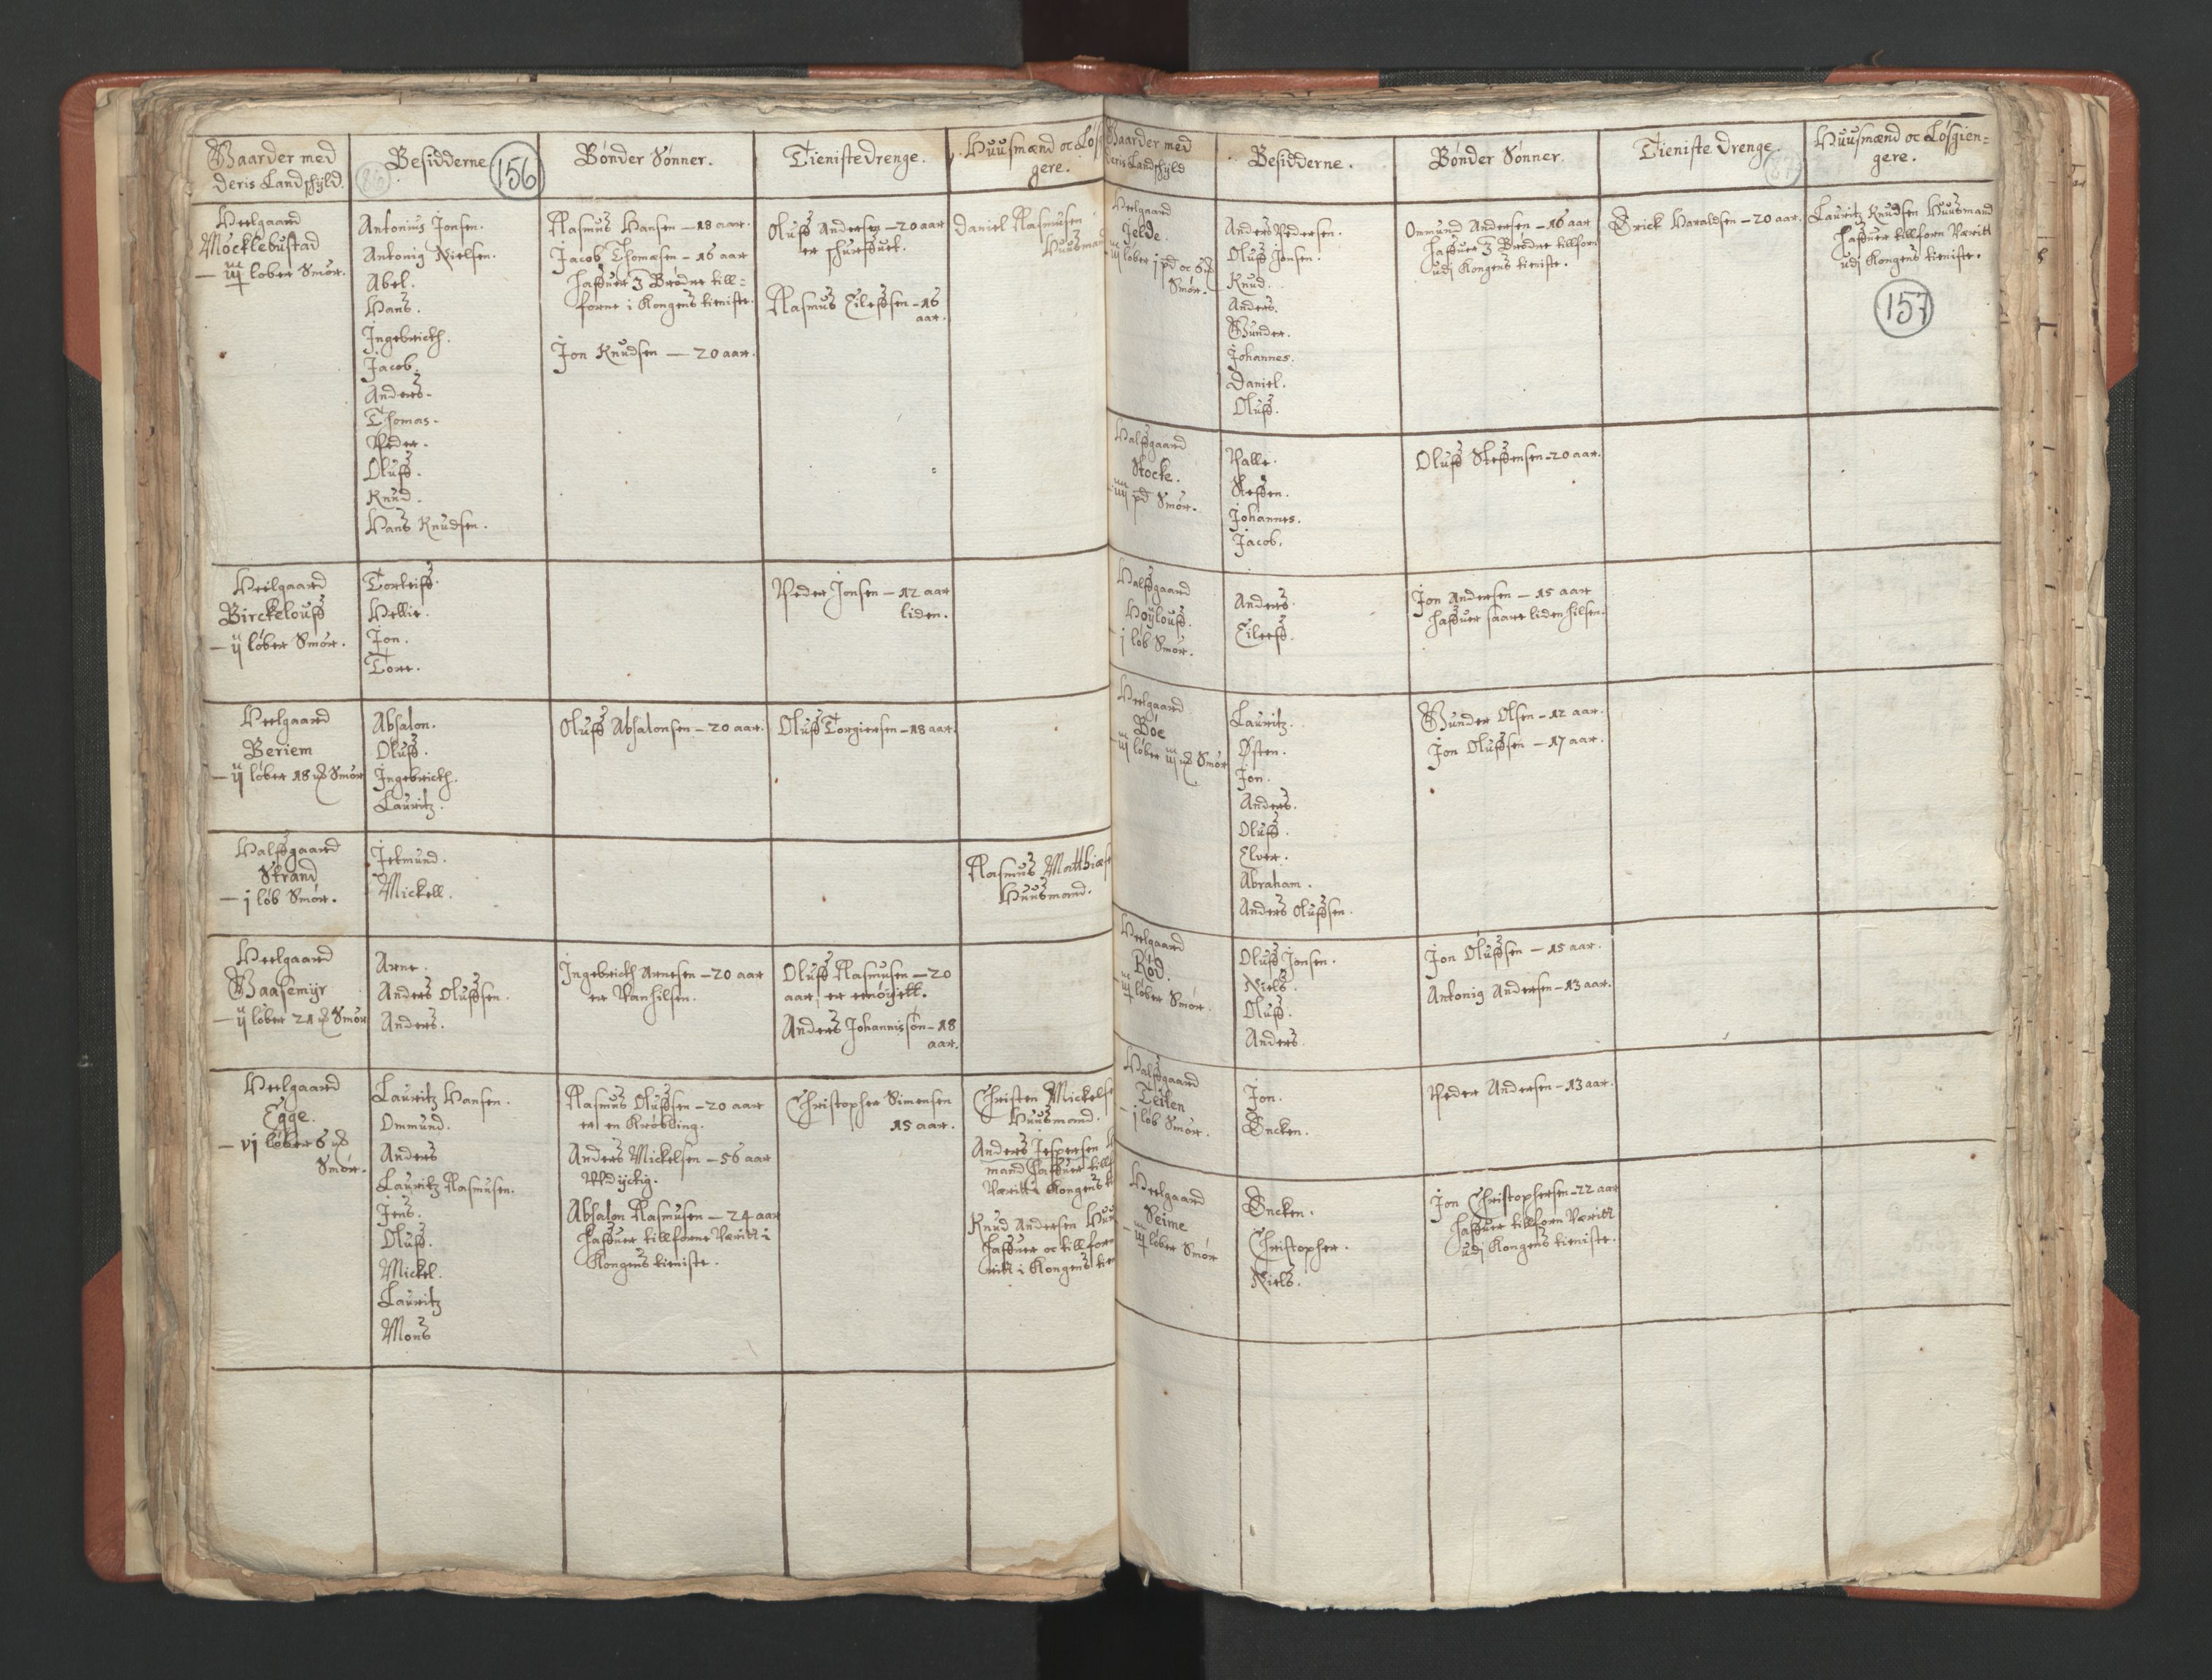 Gaarder med
deris Landskyld.
Besidderne
156
Bønder Sønner.
Tieniste drenge.
Huusmænd oc Løs
gere.
Heelgaard
Mocklebustad
løber Smør.
Antonius Jonsen.
Antonig Nielsen.
Abel.
Hans.
Ingebricth.
Jacob.
Anders.
Thomas.
Peder.
Oluff.
Knud.
Hans Knudsen.
Rasmus Hansen — 18 aar.
Jacob Thomæsen — 16 aar
haffuer 3 Brødre till=
forne i Kongens tieniste.
Jon Knudsen — 20 aar.
Oluff Andersen — 20 aar
er skurffuet.
Rasmus Eileffsen — 16
aar.
Daniel Rasmusen
Huusmand
Heelgaard
Birckelouff
— ij løber Smør.
Torleiff.
Hellie.
Jon.
Tore.
Peder Jonsen — 12 aar
liden.
Heelgaard
Beriem
— ij løber 18 Smør
Absalon.
Oluff.
Ingebricth.
Lauritz.
Oluff Absalonsen — 20 aar.
Oluff Torgiersen — 18 aar.
Halffgaard
Strand
— j løb Smør.
Jetmund.
Mickell.
Rasmus Matthias
Huusmand.
Heelgaard
Gaasemyr
— ij løber 21 Smør
Arne.
Anders Oluffsen.
Anders.
Ingebricth Arnesen — 20 aar
er Vanhilsen.
Oluff Rasmusen — 20
aar, er eenøyett.
Anders Johannissøn — 18
aar.
Heelgaard
Egge.
— vj løber 6
Smør.
Lauritz Hansen.
Ommund.
Anders
Lauritz Rasmusen.
Jens.
Oluff.
Mickel.
Lauritz
Mons
Rasmus Oluffsen — 20 aar
er en Krøbling.
Anders Mickelsen — 56 aar
Vdyctig.
Absalon Rasmusen — 24 aar
haffuer tillforne Væritt i
Kongens tieniste.
Christopher Simensen
15 aar.
Christen Mickelse
Huusmand.
Anders Jespersen
mand haffuer till
Væritt i Kongens
Knud Andersen Huu
haffuer oc tillforn
ritt i Kongens tien
Gaarder med
deris Landskyld
Besidderne.
Bønder Sønner.
Tieniste drenge.
Huusmænd oc Løsgien=
gere.
157
Heelgaard
Jelde.
løber j pd oc 6
Smør.
Anders Pedersen.
Oluff Jonsen.
Knud.
Anders.
Gunder.
Johannes.
Daniel.
Oluff.
Ommund Andersen — 16 aar
haffuer 3 Brødre tillforn
udj Kongens tieniste.
Erick Haraldsen — 20 aar.
Lauritz Knudsen Huusmand
haffuer tillforn Væritt
udj Kongens tieniste.
Halffgaard
Stocke.
pd Smør.
Palle.
Steffen.
Johannes.
Jacob.
Oluff Steffensen — 20 aar.
Halffgaard
Hoylouff.
j løb Smør.
Anders.
Eileff.
Jon Andersen — 15 aar
haffuer saare liden hilsen.
Heelgaard
Bøe
iij løber iij Smør
Lauritz.
Østen.
Jon.
Anders.
Oluff.
Elver.
Abraham.
Anders Oluffsen.
Gunder Olsen — 12 aar.
Jon Oluffsen — 17 aar.
Heelgaard
Rød.
løber Smør.
Oluff Jonsen.
Niels.
Oluff.
Anders.
Jon Oluffsen — 15 aar.
Antonig Andersen — 13 aar.
Halffgaard
Teilen
— j løb Smør.
Jon.
Encken.
Peder Andersen — 13 aar.
Heelgaard
Seime
løber Smør
Encken.
Christopher.
Niels.
Jon Christophersen — 22 aar
haffuer tillforn Væritt
udj Kongens tieniste.